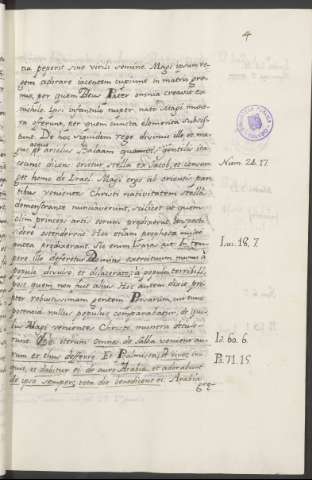 4
tia peperit sine virili semine. Magi ipsum re-
gem adorare iacentem cupiunt in matris gre-
mio, per quem Deus Pater omnia creavit ex
nihilo. Ipsi infantulo nuper nato Magi mune-
ra offerunt, per quem cuncta elementa subsis-
tunt. De hoc siquidem rege divinus ille et ma-
gus et ariolus Balaam quamvis gentilis ita
acque
cecinit dicens orietur stella ex Jacob, et consur-
get homo de Israel. Magi ergo ab orientis par-
tibus venientes Christi nativitatem stella
demonstrante nunciaverunt, sicut et quem
olim princeps artis eorum predixerat,
sidere ostenderent. Hos etiam propheta
ventea predixerant. Sic enim Esaias ait In tem-
pore illo deferetur Domino exercituum munus a
populo divulso et dilacerato; a populo terribili
post quem non fuit alius. Hos autem dixit prop-
ter robustissimam gentem Persarum, cui tunc
potencia nullus populus comparabatur, de qui-
bus Magi venientes Christo munera attule-
runt. Qui iterum omnes de Sabba venient au-
rum et thus deferre. Et Psalmista Et vivet in-
quit, et dabitur ei de auro Arabie, et adorabunt
de ipso semper; tota die benedicent ei. Arabia
Num. 24. 17.
Isai. 18. 7.
Is. 60. 6.
Ps. 71. 15